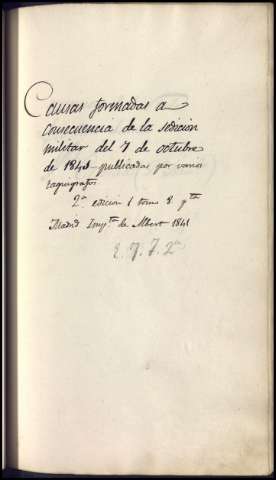 Causas formadas a
consecuencia de la sedicion
militar del 7 de octubre
de 1841 publicadas por varios
taquigrafos
2ª edicion 1 tomo 8º
Madrid Impᵗᵃ de Albert 1841
E. 7. 2ª